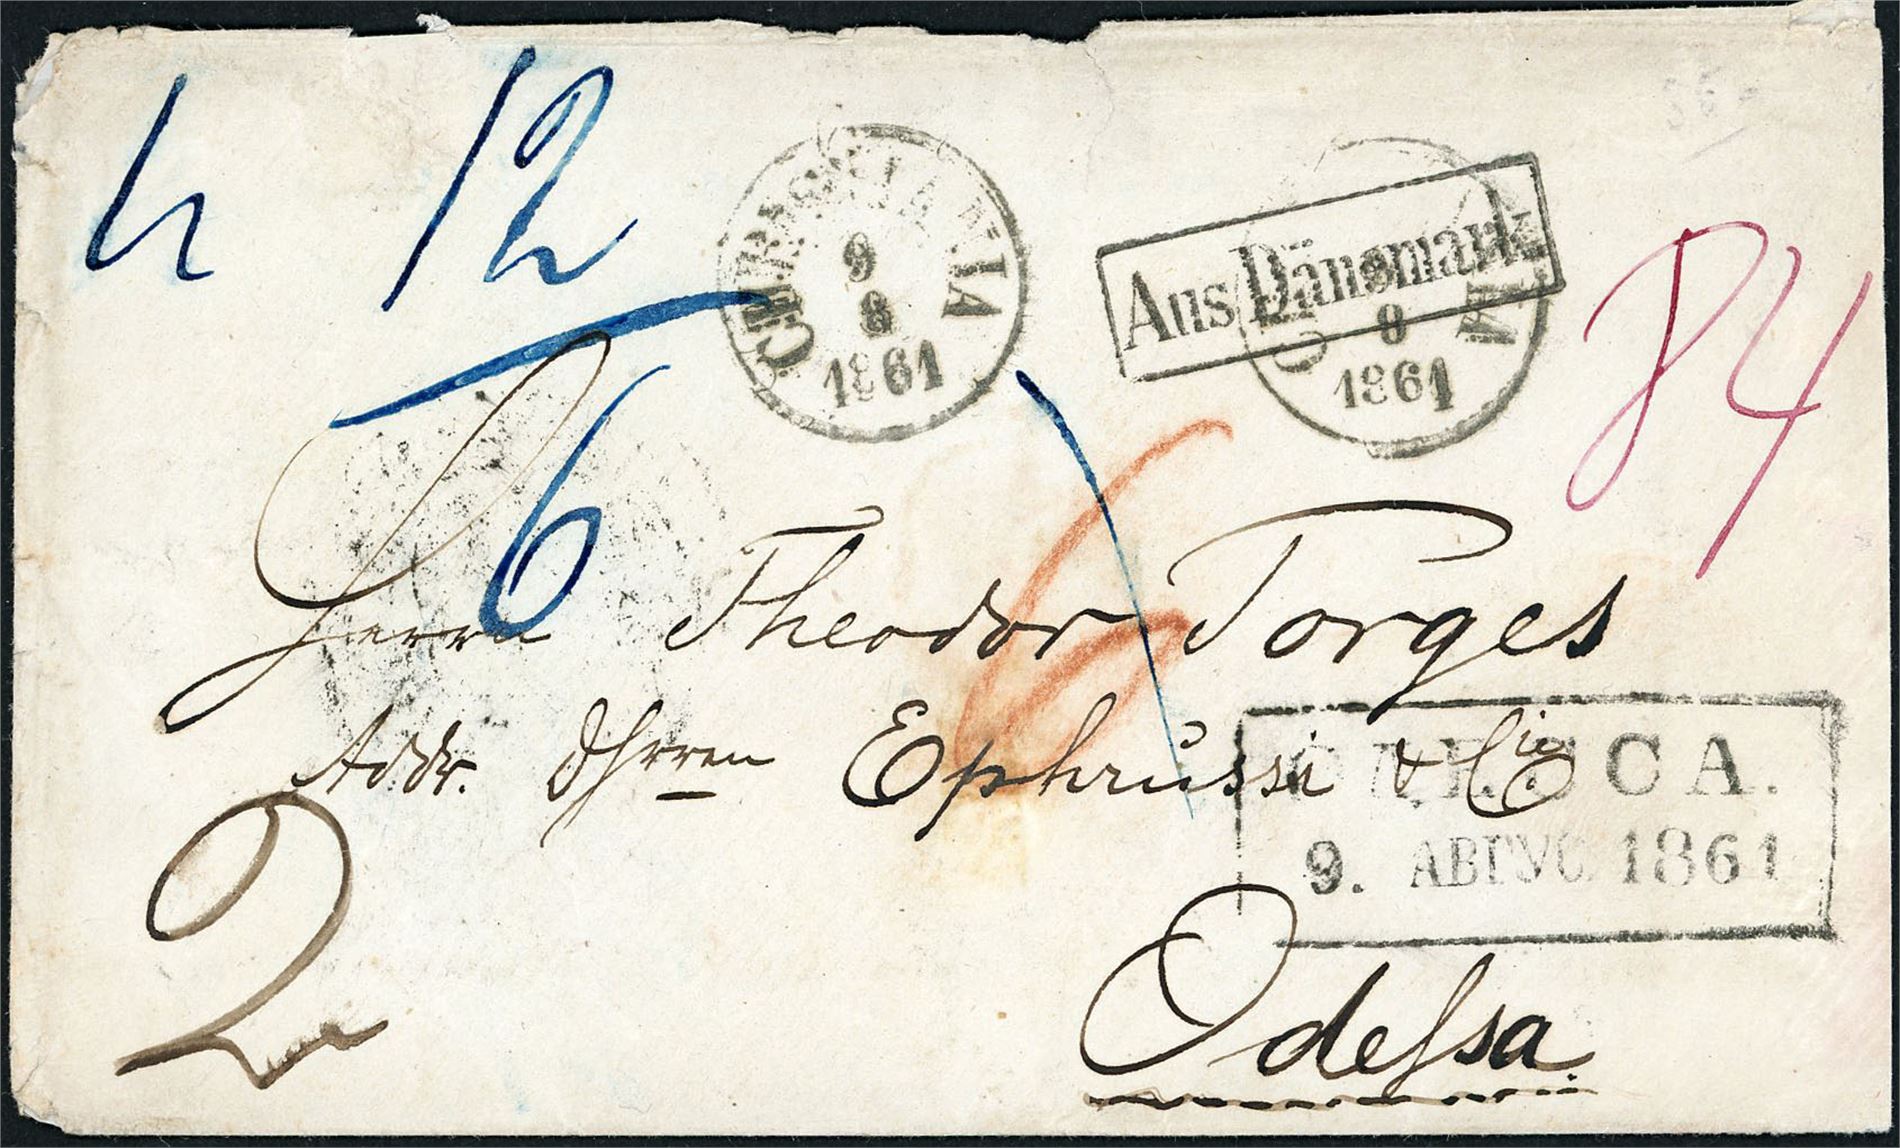 12
6
CHRISTIANIA
9
8
1861
Aus Dänemark
8
1861
84
6
Herrn Theodor Torges
Addr. d Hrren Ephrussi & Cie
ОДЕССА.
9. АВГУС 1861
2
Odessa